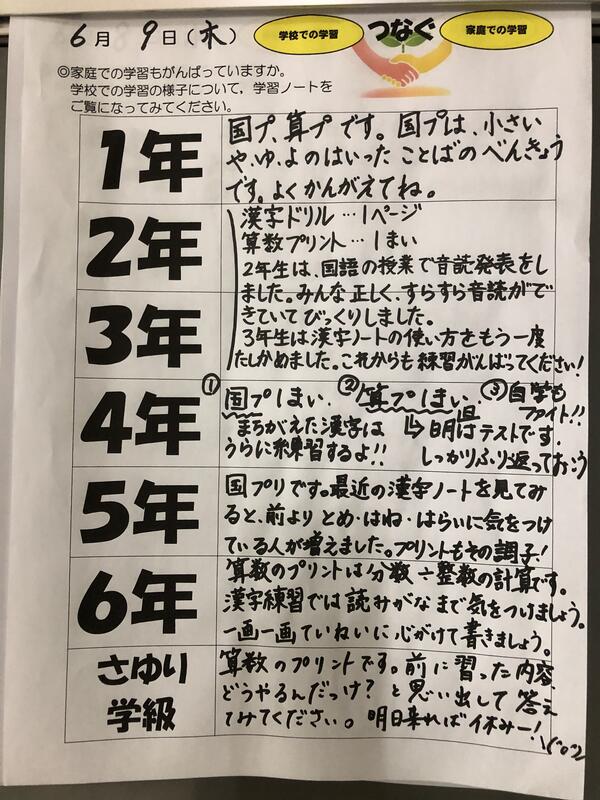 6月9日(木)
学校での学習
つなぐ
家庭での学習
◎家庭での学習もがんばっていますか。
学校での学習の様子について,学習ノートを
ご覧になってみてください。
1年
国プ、算プです。国プは、小さい
や、ゆ、よのはいったことばのべんきょう
です。よくかんがえてね。
2年
3年
漢字ドリル…1ページ
算数プリント…1まい
2年生は、国語の授業で音読発表をし
ました。みんな正しく、すらすら音読がで
きていてびっくりしました。
3年生は漢字ノートの使い方をもう一度
たしかめました。これからも練習がんばってください!
4年
①国プ1まい. ②算プ1まい. ③自学も
ファイト!!
まちがえた漢字は
うらに練習するよ!!
↳明日はテストです。
しっかりふり返っておこう
5年
国プリです。最近の漢字ノートを見てみ
ると、前よりとめ・はね・はらいに気をつけ
ている人が増えました。プリントもその調子!
6年
算数のプリントは分数÷整数の計算です。
漢字練習では読みがなまで気をつけましょう。
一画一画ていねいに心がけて書きましょう。
さゆり
学級
算数のプリントです。前に習った内容、
どうやるんだっけ?と思い出して答え
てみてください。明日来れば休みー!